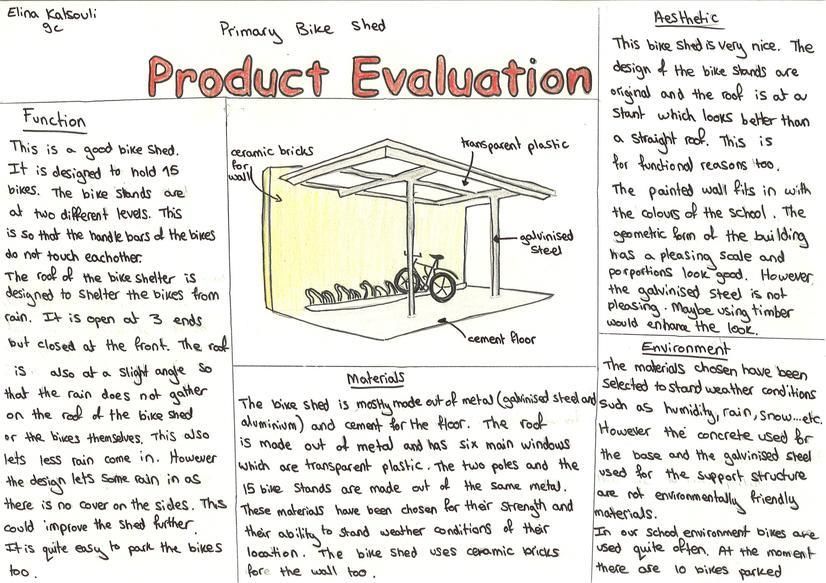 Elina Katsouli
9c
Primary Bike Shed
Product Evaluation
Function
This is a good bike shed.
It is designed to hold 15
bikes. The bike stands are
at two different levels. This
is so that the handle bars of the bikes
do not touch eachother.
The roof of the bike shelter is
designed to shelter the bikes from
rain. It is open at 3 ends
but closed at the front. The roof
is also at a slight angle so
that the rain does not gather
on the roof of the bike shed
or the bikes themselves. This also
lets less rain come in. However
the design lets some rain in as
there is no cover on the sides. This
could improve the shed further.
It is quite easy to park the bikes
too.
ceramic bricks
for
wall
transparent plastic
galvinised
steel
cement floor
Materials
The bike shed is mostly made out of metal (galvinised steel and
aluminium) and cement for the floor. The roof
is made out of metal and has six main windows
which are transparent plastic. The two poles and the
15 bike stands are made out of the same metal.
These materials have been chosen for their strength and
their ability to stand weather conditions of their
location. The bike shed uses ceramic bricks
fore the wall too.
Aesthetic
This bike shed is very nice. The
design of the bike stands are
original and the roof is at a
slant which looks better than
a straight roof. This is
for functional reasons too.
The painted wall fits in with
the colours of the school. The
geometric form of the building
has a pleasing scale and
porportions look good. However
the galvinised steel is not
pleasing. Maybe using timber
would enhance the look.
Environment
The materials chosen have been
selected to stand weather conditions
such as humidity, rain, snow...etc.
However the concrete used for
the base and the galvinised steel
used for the support structure
are not environmentally friendly
materials.
In our school environment bikes are
used quite often. At the moment
there are 10 bikes parked